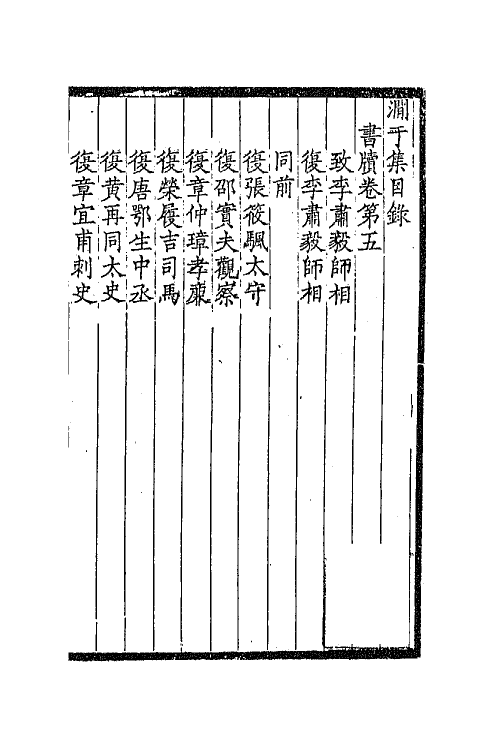 澗于集目錄
書牘卷第五
致李肅毅師相
復李肅毅師相
同前
復張筱颿太守
復邵實夫觀察
復章仲璋孝廉
復榮履吉司馬
復唐鄂生中丞
復黃再同太史
復章宜甫刺史